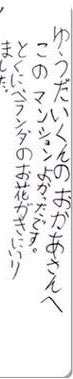 ゆうだいくんのおかあさんへ
このマンションよかったです。
とくにベランダのお花がきにいり
ました。